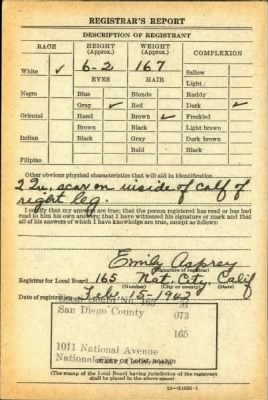 REGISTRAR'S REPORT
DESCRIPTION OF REGISTRANT
RACE HEIGHT (Approx.) WEIGHT (Approx.) COMPLEXION
White ✓ 6-2 167 Sallow
EYES HAIR Light
Negro Blue Blonde Ruddy
Gray ✓ Red Dark ✓
Oriental Hazel Brown ✓ Freckled
Brown Black Light brown
Indian Black Gray Dark brown
Bald Black
Filipino
Other obvious physical characteristics that will aid in identification
2 in. scar on inside of calf of
right leg.
I certify that my answers are true; that the person registered has read or has had
read to him his own answers; that I have witnessed his signature or mark and that
all of his answers of which I have knowledge are true, except as follows:
Emily Asprey
(Signature of registrar)
Registrar for Local Board 165 Nat. City, Calif
(State)
Date of registration Feb. 15-1942
San Diego County 073
165
1011 National Avenue
STAMP OF LOCAL BOARD
(The stamp of the Local Board having jurisdiction of the registrant
shall be placed in the above space)